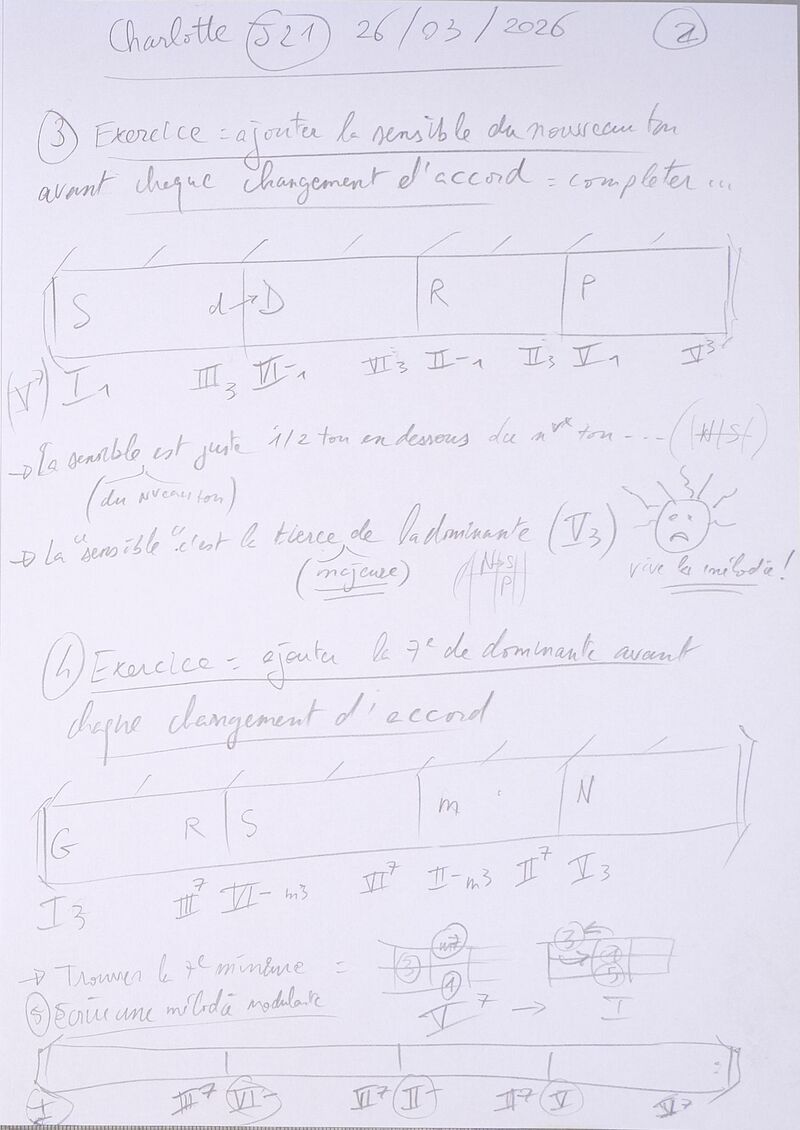 Charlotte J21 26/03/2026 1
3 Exercice = ajouter la sensible du nouveau ton
avant chaque changement d'accord = completer ...
S d→D R P
(V7) I1 III3 VI-1 VI3 II-1 II3 V1 V3
→ La sensible est juste 1/2 ton en dessous du nvx ton .... (N|S)
(du nveau ton)
→ La "sensible" c'est la tierce de la dominante (V3)
(majeure) N→S P vive la mélodie!
4 Exercice = ajouter la 7e de dominante avant
chaque changement d'accord
G R S m N
I3 III7 VI-m3 VI7 II-m3 II7 V3
→ Trouver la 7e mineure = 3 m7 1 3 1 5
V7 → I
5 Ecrire une mélodie modulante
I III7 VI- VI7 II- II7 V V7